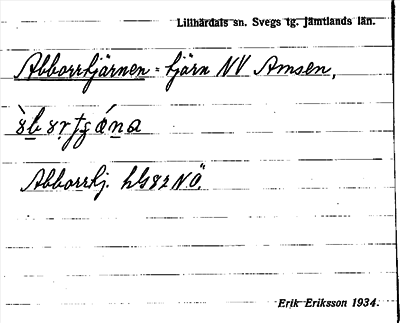 Lillhärdals sn. Svegs tg. Jämtlands län.
Abborrtjärnen - tjärn NV Amsen,
Abborrtj. hls 82 N.Ö.
Erik Eriksson 1934.